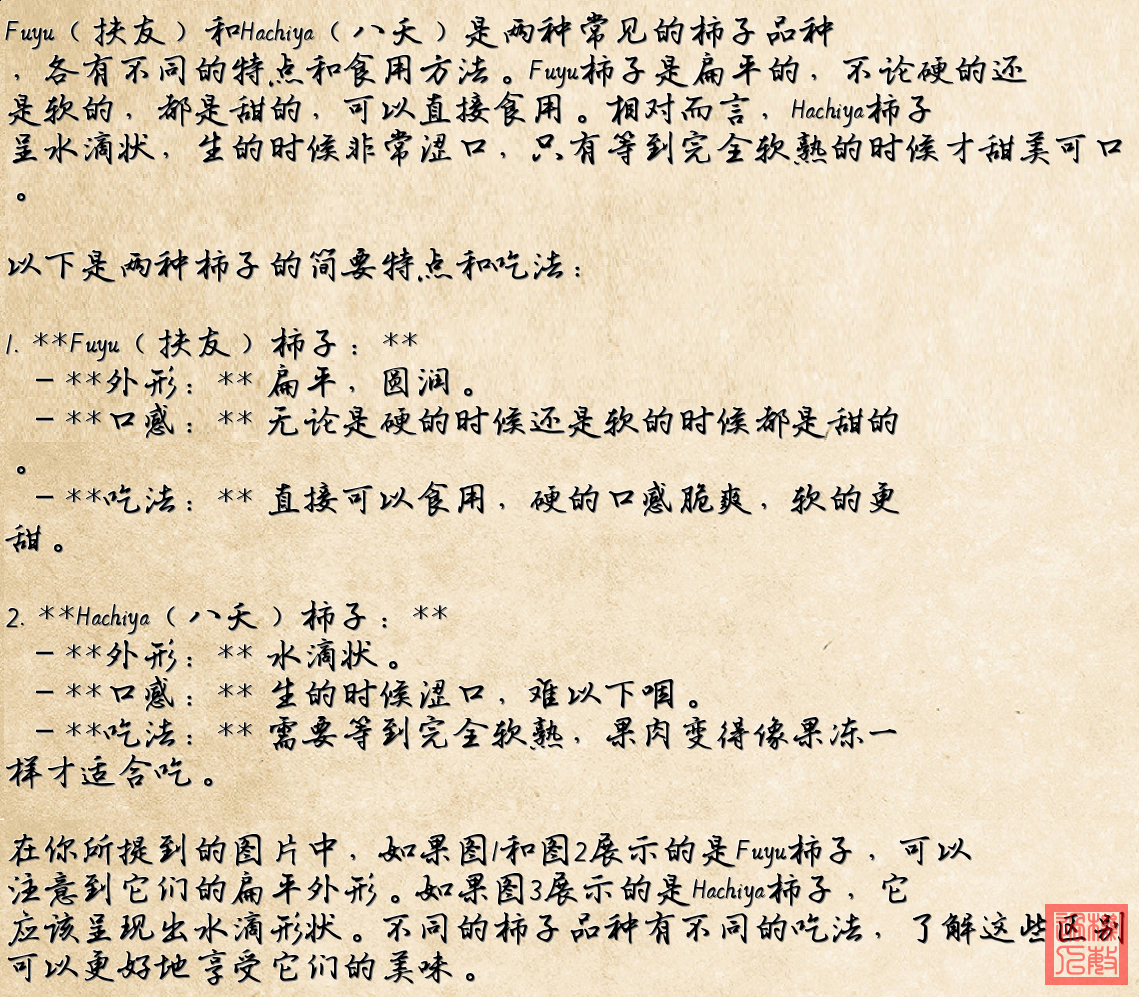 Fuyu（扶友）和Hachiya（八夭）是两种常见的柿子品种
，各有不同的特点和食用方法。Fuyu柿子是扁平的，不论硬的还
是软的，都是甜的，可以直接食用。相对而言，Hachiya柿子
呈水滴状，生的时候非常涩口，只有等到完全软熟的时候才甜美可口
。
以下是两种柿子的简要特点和吃法：
1. **Fuyu（扶友）柿子：**
- **外形：** 扁平，圆润。
- **口感：** 无论是硬的时候还是软的时候都是甜的
。
- **吃法：** 直接可以食用，硬的口感脆爽，软的更
甜。
2. **Hachiya（八夭）柿子：**
- **外形：** 水滴状。
- **口感：** 生的时候涩口，难以下咽。
- **吃法：** 需要等到完全软熟，果肉变得像果冻一
样才适合吃。
在你所提到的图片中，如果图1和图2展示的是Fuyu柿子，可以
注意到它们的扁平外形。如果图3展示的是Hachiya柿子，它
应该呈现出水滴形状。不同的柿子品种有不同的吃法，了解这些区别
可以更好地享受它们的美味。